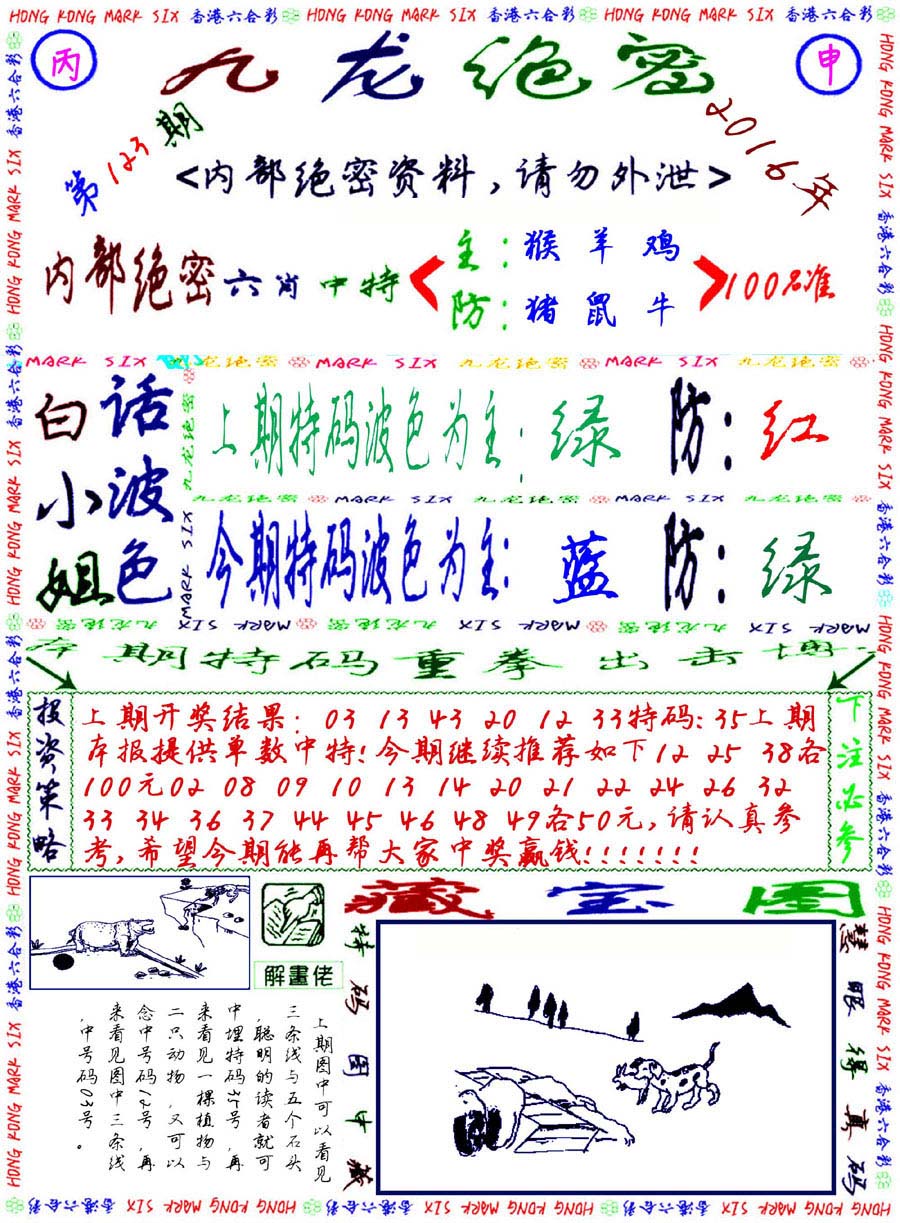 HONG KONG MARK SIX 香港六合彩 HONG KONG MARK SIX 香港六合彩 HONG KONG MARK SIX 香港六合彩
丙
九龙绝密
申
第123期
2016年
<内部绝密资料,请勿外泄>
内部绝密六肖中特
主:猴羊鸡
防:猪鼠牛
100%准
MARK SIX 九龙绝密 MARK SIX 九龙绝密 MARK SIX 九龙绝密
白小姐
话波色
上期特码波色为主:绿 防:红
九龙绝密 MARK SIX 九龙绝密 MARK SIX 九龙绝密
今期特码波色为主:蓝 防:绿
九龙绝密 MARK SIX 九龙绝密 MARK SIX 九龙绝密 MARK SIX
本期特码重拳出击博一
投资策略
上期开奖结果:03 13 43 20 12 33特码:35上期
本报提供单数中特!今期继续推荐如下12 25 38各
100元02 08 09 10 13 14 20 21 22 24 26 32
33 34 36 37 44 45 46 48 49各50元,请认真参
考,希望今期能再帮大家中奖赢钱!!!!!!!
下注必参
解畫佬
藏宝图
上期图中可以看见
三条线与五个石头
,聪明的读者就可
中埋特码35号,再
来看见一棵植物与
二只动物,又可以
念中号码12号,再
来看见图中三条线
,中号码03号。
特码图中藏
慧眼得真码
HONG KONG MARK SIX 香港六合彩 HONG KONG MARK SIX 香港六合彩 HONG KONG MARK SIX 香港六合彩